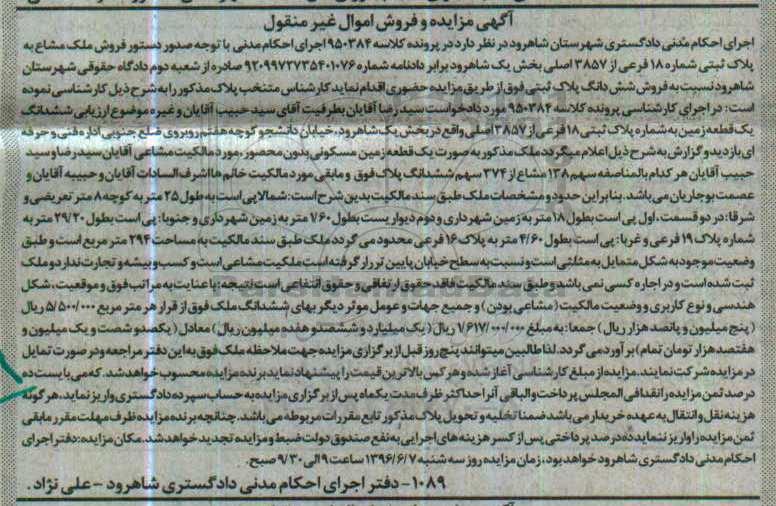 آگهی مزایده و فروش اموال غیر منقول
اجرای احکام مدنی دادگستری شهرستان شاهرود در نظر دارد در پرونده کلاسه ۹۵۰۳۸۴ اجرای احکام مدنی با توجه صدور دستور فروش ملک مشاع به
پلاک ثبتی شماره ۱۸ فرعی از ۳۸۵۷ اصلی بخش یک شاهرود برابر دادنامه شماره ۹۲۰۹۹۷۲۷۳۵۴۰۱۰۷۶ صادره از شعبه دوم دادگاه حقوقی شهرستان
شاهرود نسبت به فروش شش دانگ پلاک ثبتی فوق از طریق مزایده حضوری اقدام نماید کارشناس منتخب پلاک مذکور را به شرح ذیل کارشناسی نموده
است: در اجرای کارشناسی پرونده کلاسه ۹۵۰۳۸۴ مورد دادخواست سید رضا آقایان بطرفیت آقای سید حبیب آقایان و غیره موضوع ارزیابی ششدانگ
یک قطعه زمین به شماره پلاک ثبتی ۱۸ فرعی از ۳۸۵۷ اصلی واقع در بخش یک شاهرود، خیابان دانشجو کوچه هفتم روبروی ضلع جنوبی اداره فنی و حرفه
ای بازدید و گزارش به شرح ذیل اعلام میگردد ملک مذکور به صورت یک قطعه زمین مسکونی بدون محصور، مورد مالکیت مشاعی آقایان سید رضا و سید
حبیب آقایان هر کدام بالمناصفه سهم ۱۳۸ مشاع از ۳۷۴ سهم ششدانگ پلاک فوق و مابقی مورد مالکیت خانم ها اشرف السادات آقایان و حبیبه آقایان و
عصمت بوجاریان می باشد. بنابر این حدود و مشخصات ملک طبق سند مالکیت بدین شرح است: شمالا پی است به طول ۲۵ متر به کوچه ۸ متر تعریضی و
شرقا: در دو قسمت، اول پی است بطول ۱۸ متر به زمین شهرداری و دوم دیوار یست بطول ۱/۶۰ متر به زمین شهرداری و جنوبا: پی است بطول ۲۹/۲۰ متر به
شماره پلاک ۱۹ فرعی و غربا: پی است بطول ۴/۶۰ متر به پلاک ۱۶ فرعی محدود می گردد ملک طبق سند مالکیت به مساحت ۲۹۴ متر مربع است و طبق
وضعیت موجود به شکل متمایل به مثلثی است و نسبت به سطح خیابان پایین تر قرار گرفته است ملکیت مشاعی است و کسب و پیشه و تجارت ندارد و ملک
ثبت شده است و در اجاره کسی نمی باشد و طبق سند مالکیت فاقد حقوق ارتفاقی و حقوق انتفاعی است نتیجه: با عنایت به مراتب فوق و موقعیت، شکل
هندسی و نوع کاربری و وضعیت مالکیت (مشاعی بودن) و جمیع جهات و عوامل موثر دیگر بهای ششدانگ ملک فوق از قرار هر متر مربع ۵/۵۰۰/۰۰۰ ریال
(پنج میلیون و پانصد هزار ریال) جمعا: به مبلغ ۱/۶۱۷/۰۰۰/۰۰۰ ریال (یک میلیارد و ششصد و هفده میلیون ریال) معادل (یکصد و شصت و یک میلیون و
هفتصد هزار تومان تمام) برآورد می گردد. لذا طالبین میتوانند پنج روز قبل از برگزاری مزایده جهت ملاحظه ملک فوق به این دفتر مراجعه و در صورت تمایل
در مزایده شرکت نمایند. مزایده از مبلغ کارشناسی آغاز شده و هر کس بالاترین قیمت را پیشنهاد نماید برنده مزایده محسوب خواهد شد. که می بایست ده
درصد ثمن مزایده را نقدا فی المجلس پرداخت و الباقی آنرا حداکثر ظرف مدت یکماه پس از برگزاری مزایده به حساب سپرده دادگستری واریز نماید، هر گونه
هزینه نقل و انتقال به عهده خریدار می باشد ضمنا تخلیه و تحویل پلاک مذکور تابع مقررات مربوطه می باشد. چنانچه برنده مزایده ظرف مهلت مقرر مابقی
ثمن مزایده را واریز ننماید ده درصد پرداختی پس از کسر هزینه های اجرایی به نفع صندوق دولت ضبط و مزایده تجدید خواهد شد. مکان مزایده: دفتر اجرای
احکام مدنی دادگستری شاهرود خواهد بود، زمان مزایده روز سه شنبه ۱۳۹۶/۶/۷ ساعت ۹ الی ۹/۳۰ صبح.
۱۰۸۹- دفتر اجرای احکام مدنی دادگستری شاهرود - علی نژاد.